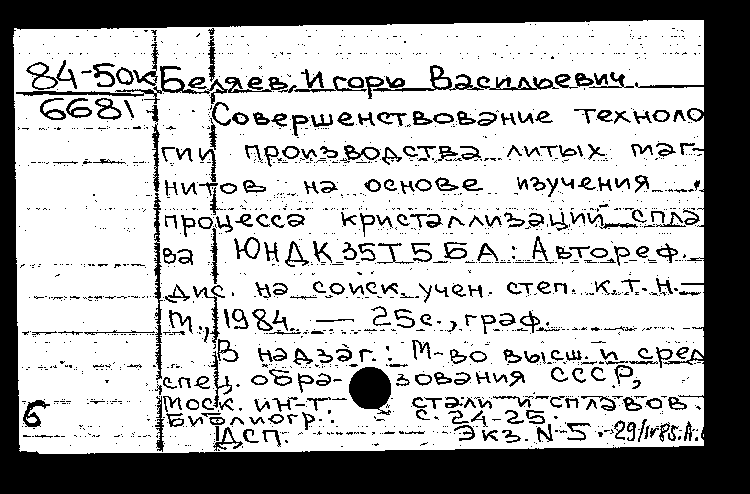 84-50к Беляев, Игорь Васильевич.
6681 Совершенствование техноло
гии производства литых маг-
нитов на основе изучения
процесса кристаллизации спла
ва ЮНДК35Т5БА: Автореф.
дис. на соиск. учен. степ. к.т.н.—
М., 1984. — 25с., граф.
В надзаг.: М-во высш. и сред
спец. обра- зования СССР,
Моск. ин-т стали и сплавов.
Библиогр.: с. 24-25.
б
ДСП. Экз. N 5.